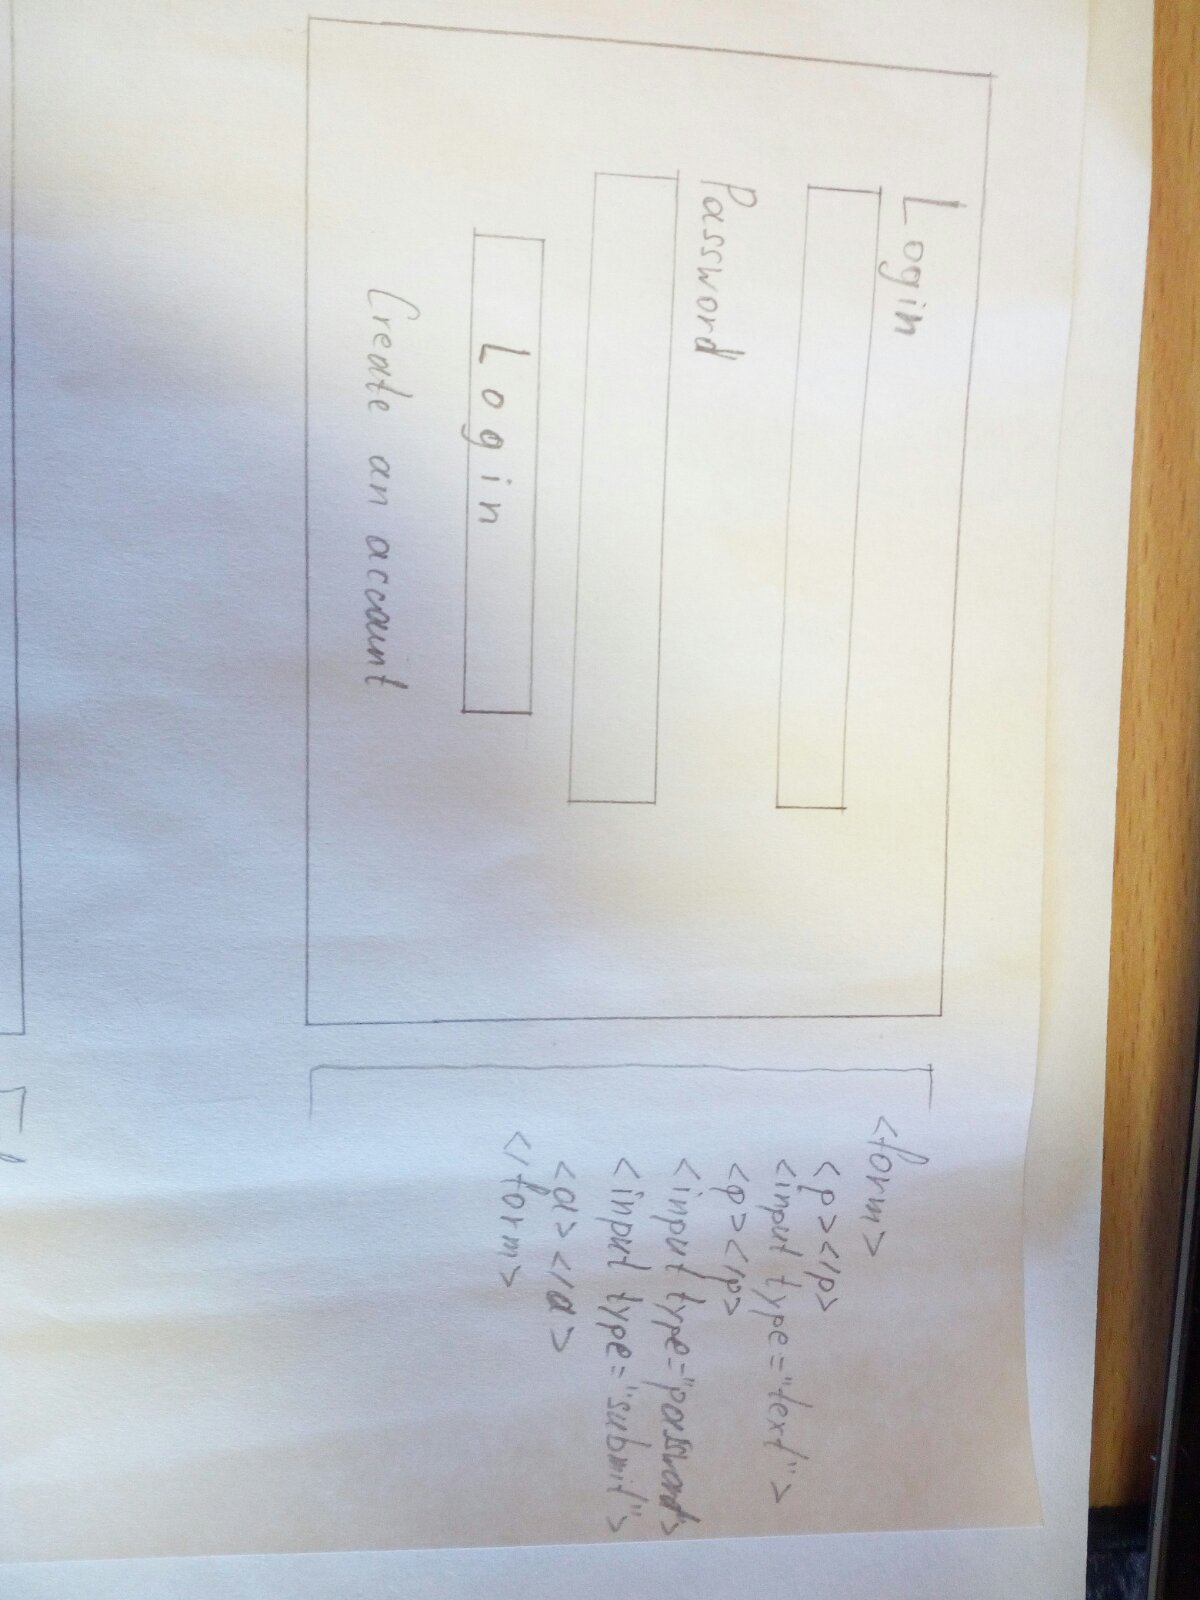 Login
Password
Login
Create an account
<form>
<p></p>
<input type="text">
<p></p>
<input type="password>
<input type="submit">
<a></a>
</form>